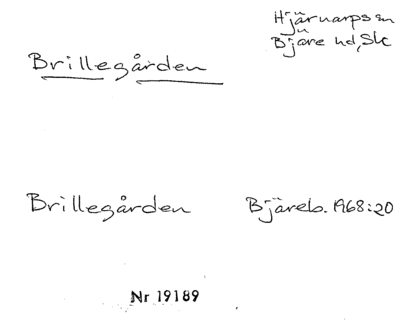 Hjärnarps sn
Bjäre hd, Sk
Brillegården
Brillegården Bjäreb. 1968:20
Nr 19189